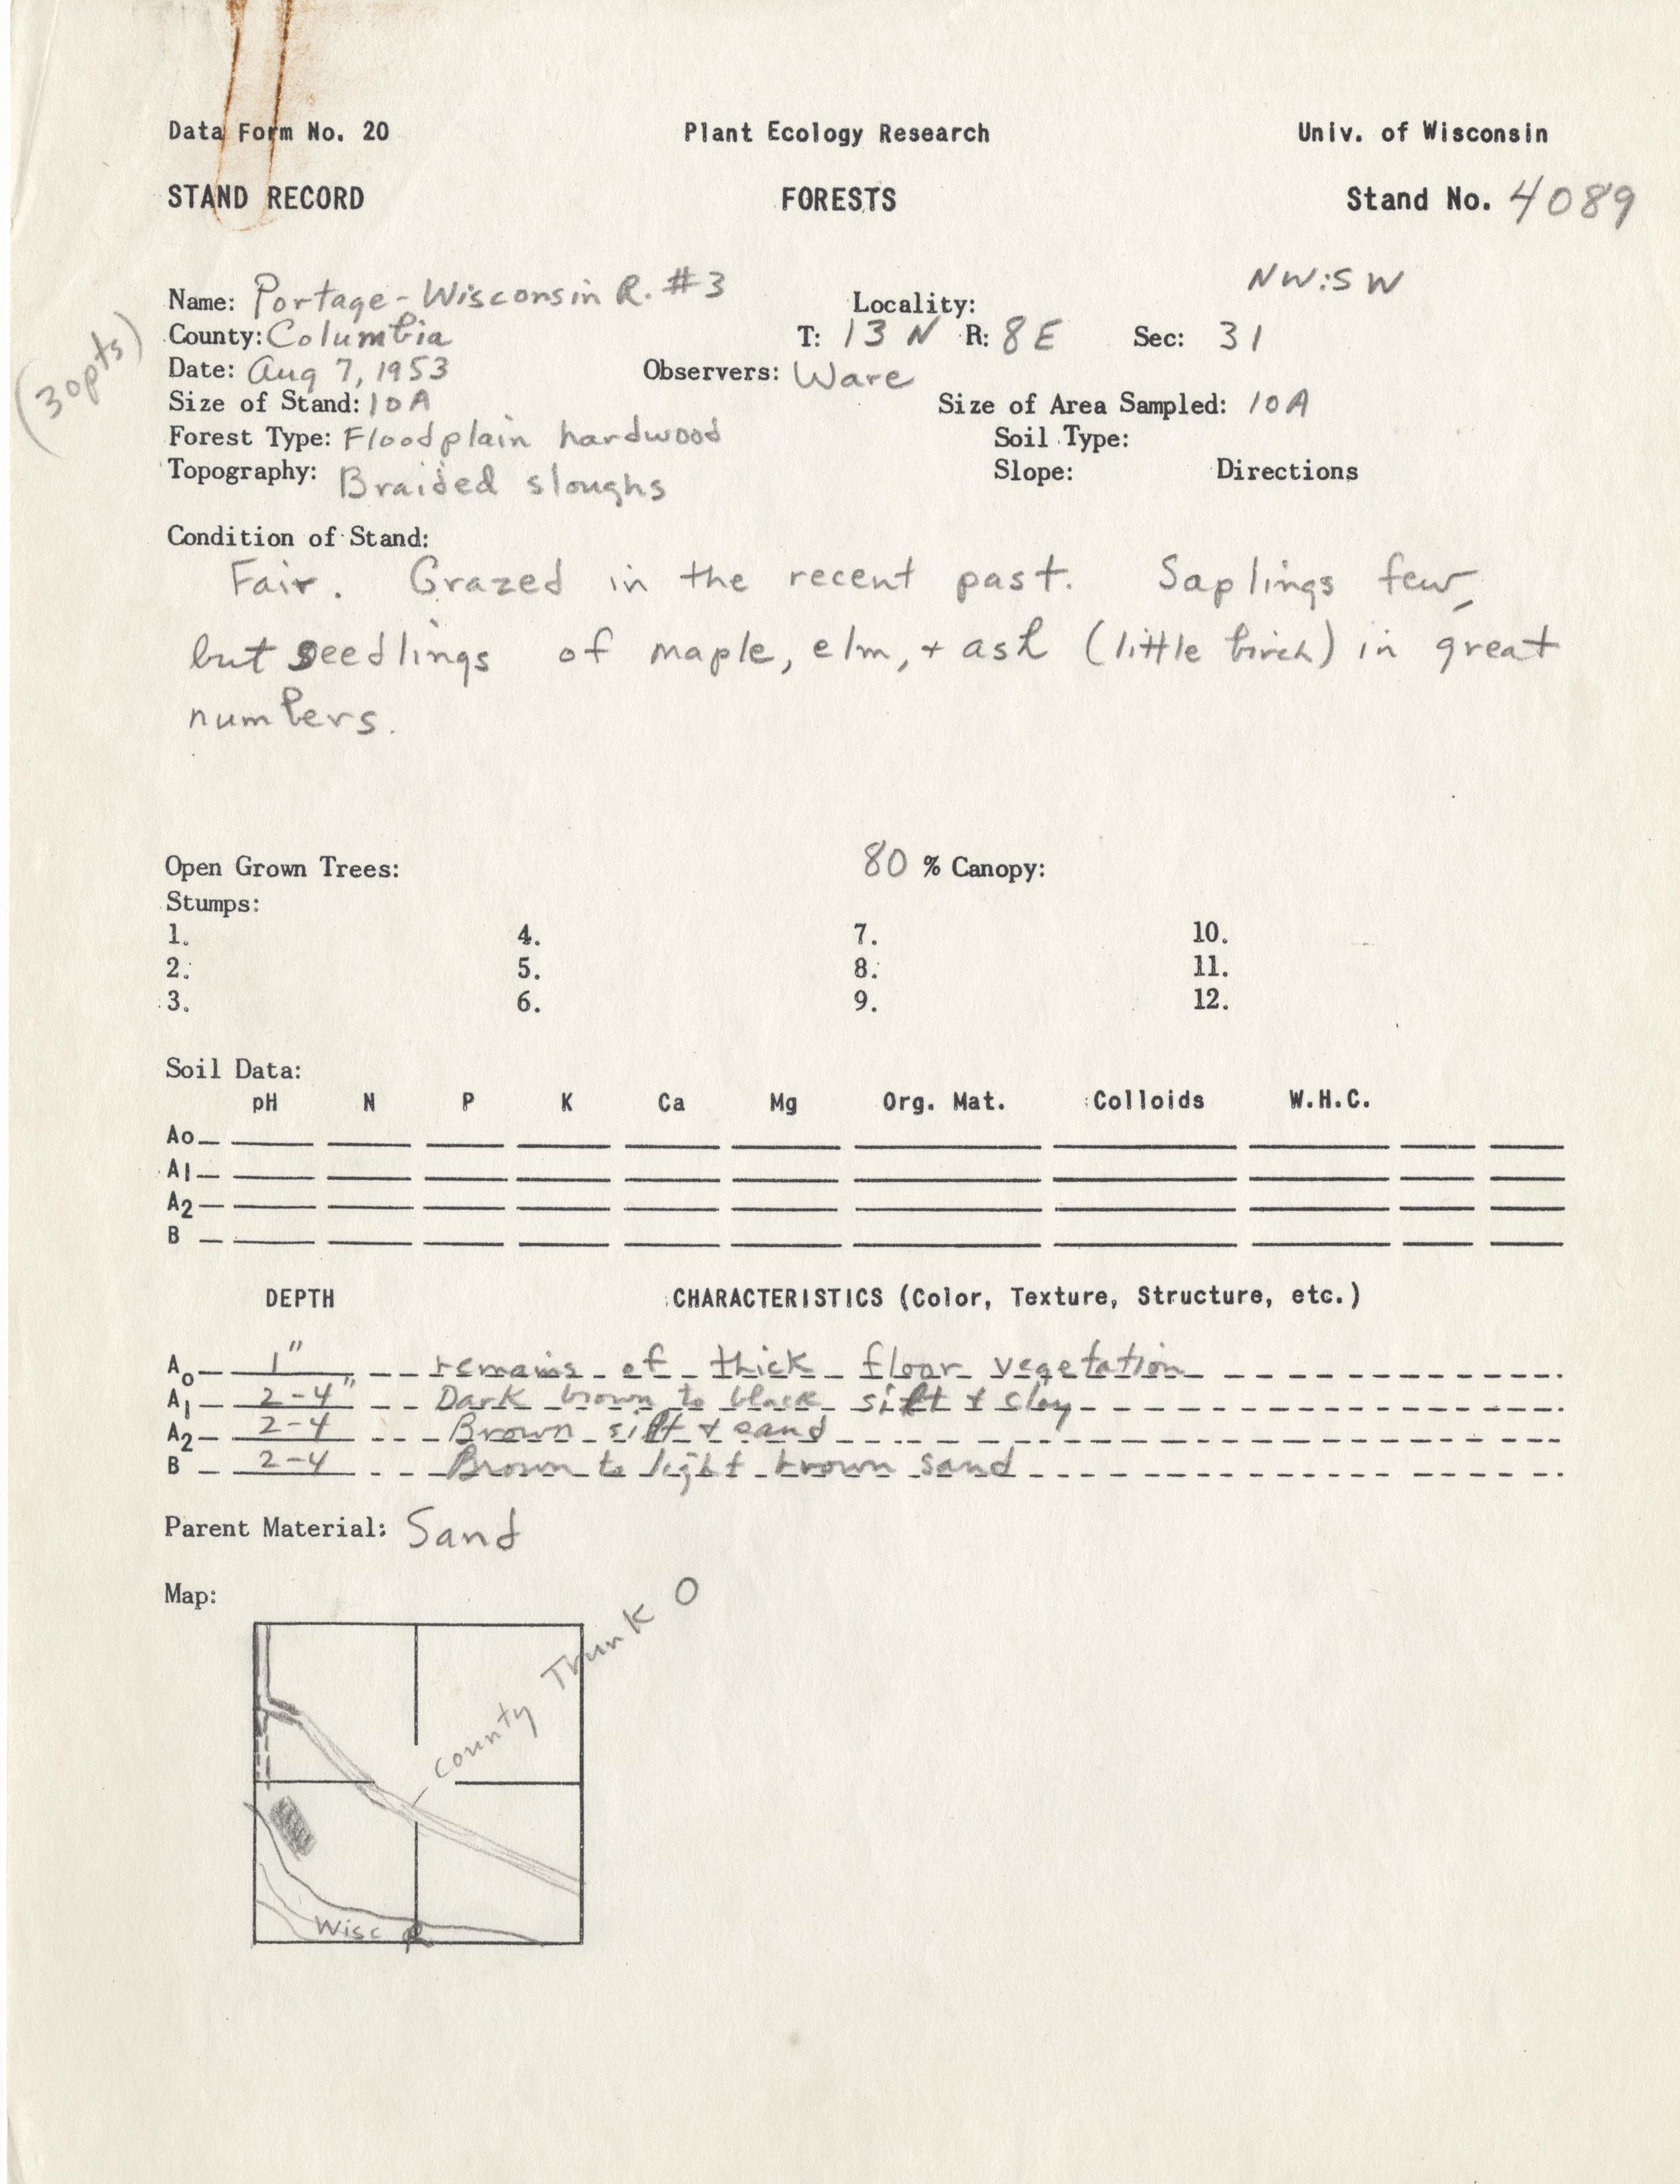 Data Form No. 20 Plant Ecology Research Univ. of Wisconsin
STAND RECORD FORESTS Stand No. 4089
NW:SW
Name: Portage-Wisconsin R. #3 Locality:
County: Columbia T: 13 N R: 8 E Sec: 31
(30pts)
Date: Aug 7, 1953 Observers: Ware
Size of Stand: 10A Size of Area Sampled: 10A
Forest Type: Floodplain hardwood Soil Type:
Topography: Braided sloughs Slope: Directions
Condition of Stand:
Fair. Grazed in the recent past. Saplings few,
but seedlings of maple, elm, + ash (little birch) in great
numbers.
Open Grown Trees: 80 % Canopy:
Stumps:
1. 4. 7. 10.
2. 5. 8. 11.
3. 6. 9. 12.
Soil Data:
pH N P K Ca Mg Org. Mat. Colloids W.H.C.
Ao
A1
A2
B
DEPTH CHARACTERISTICS (Color, Texture, Structure, etc.)
Ao 1" remains of thick floor vegetation
A1 2-4" Dark brown to black silt + clay
A2 2-4 Brown silt + sand
B 2-4 Brown to light brown sand
Parent Material: Sand
Map:
County Trunk O
Wisc R